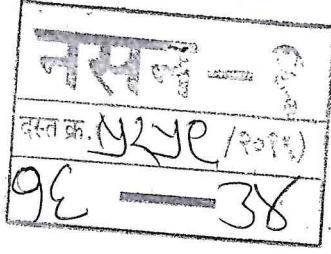 नसन - १
दस्त क्र. ५२५९ /२०१५
१६ — ३४